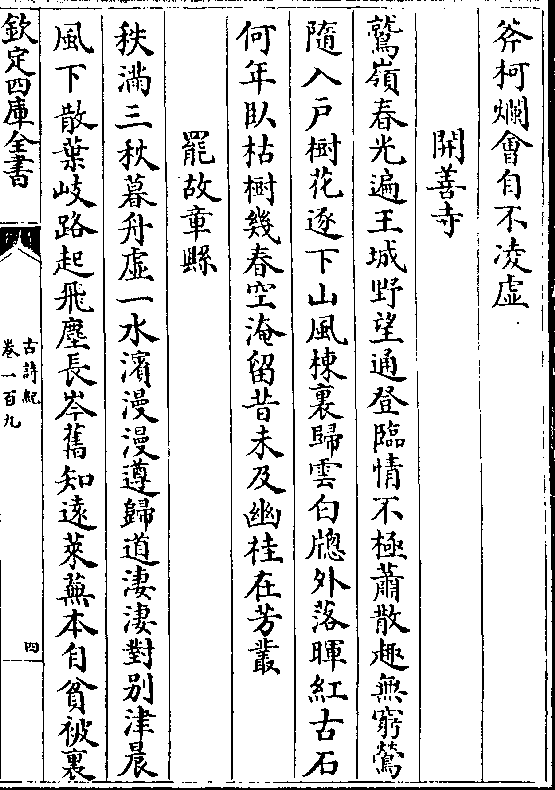 斧柯爛會自不凌虛
開善寺
鷲嶺春光遍王城野望通登臨情不極蕭散趣無窮鶯
隨入戶樹花逐下山風棟裏歸雲白牕外落暉紅古石
何年臥枯樹幾春空淹留昔未及幽桂在芳叢
罷故章縣
秩滿三秋暮舟虛一水濱漫漫遵歸道淒淒對別津晨
風下散葉岐路起飛塵長岑舊知遠萊蕪本自貧被裏
欽定四庫全書
古詩紀
卷一百九
四